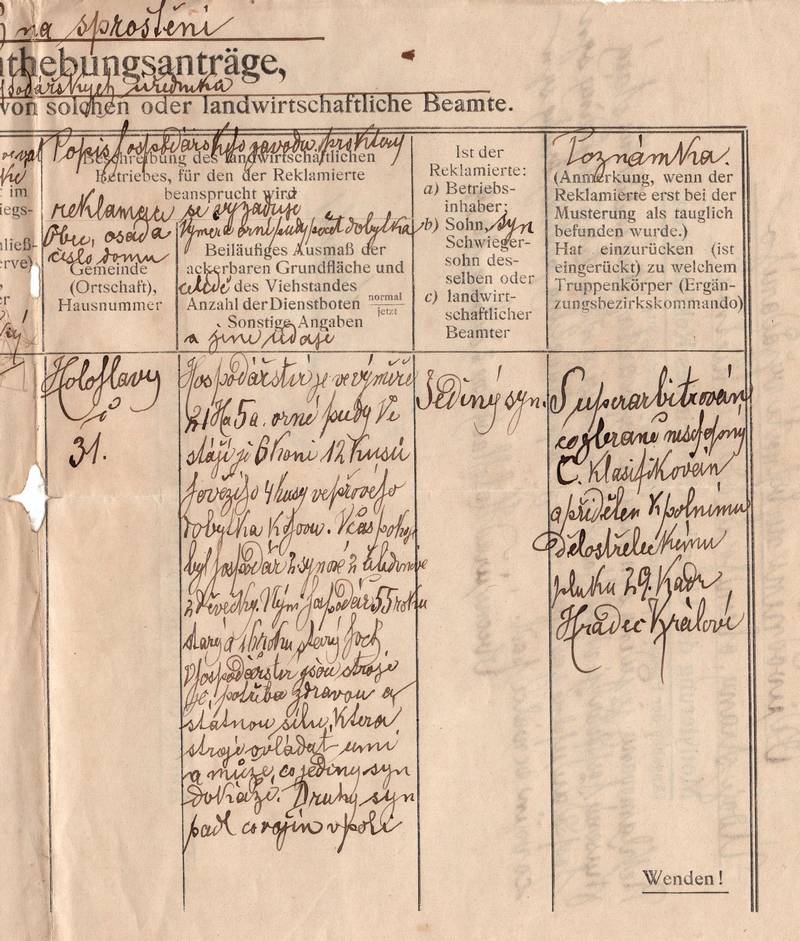 na sproštění
thebungsanträge,
úředníka
von solchen oder landwirtschaftliche Beamte.
Popis hospodářského závodu, pro který
Beschreibung des landwirtschaftlichen
Betriebes, für den der Reklamierte
beansprucht wird
reklamace se vyžaduje
Obec, osada
číslo domu
Gemeinde
(Ortschaft),
Hausnummer
Výměra orné půdy, počet dobytka
Beiläufiges Ausmaß der
ackerbaren Grundfläche und
des Viehstandes
Anzahl der Dienstboten normal
jetzt
Sonstige Angaben
a jiné údaje
Ist der
Reklamierte:
a) Betriebs-
inhaber;
b) Sohn, syn
Schwieger-
sohn des-
selben oder
c) landwirt-
schaftlicher
Beamter
Poznámka.
(Anmerkung, wenn der
Reklamierte erst bei der
Musterung als tauglich
befunden wurde.)
Hat einzurücken (ist
eingerückt) zu welchem
Truppenkörper (Ergän-
zungsbezirkskommando)
im
iegs-
ließ-
erve)
Holohlavy
č
31.
Hospodářství je ve výměře
21 Ha 5 a. orné pudy Ve
stáji je 6 koni 12 kusů
hovězího 4 kusy vepřového
dobytka k chovu. V čas pokoje
byl hospodář 2 synové 2 čeledínové
2 děvečky. Nyní hospodář 55 roku
starý a 16 roku starý hoch
V hospodářství jsou stroje
je potřeba zdravou a
statnou sílu, která
stroje ovládat umí
a může, co jediny syn
dokáže. Druhy syn
padl co vojín v poli
Jediný syn.
Superarbitrován
co zbraně neschopný
C. Klasifikován
a přidělen k polnímu
Dělostřeleckému
pluku 29. Kadr
Hradec Králové
Wenden!